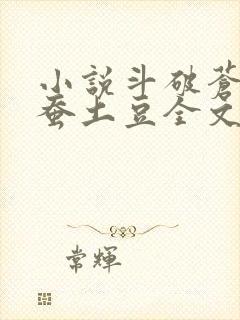 小說斗破蒼
蚕土豆全文
常輝